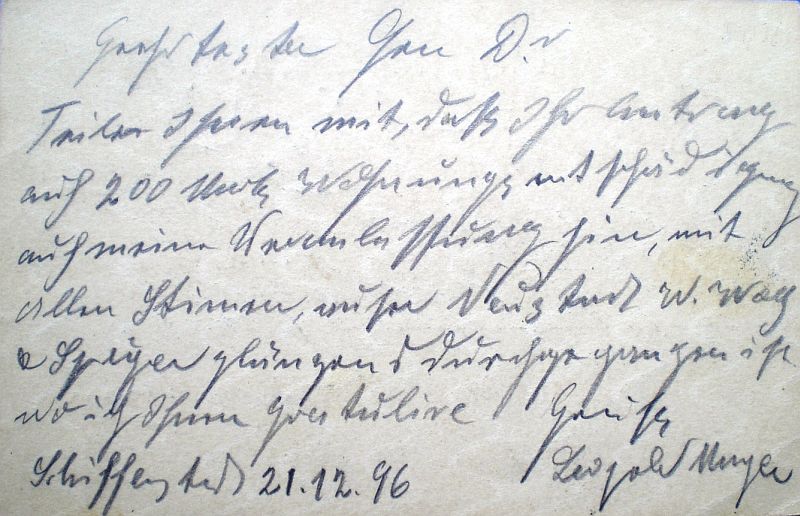 Geehrtester Herr Dr
Teile Ihnen mit, daß Ihr Antrag
auf 200 Mark Wohnungsentschädigung
auf meine Veranlassung hin, mit
allen Stimen, außer Neustadt W.
Speyer glänzend durchgegangen ist
wo ich Ihnen gratulire Gruß
Schifferstadt 21.12.96 Leopold Mayer